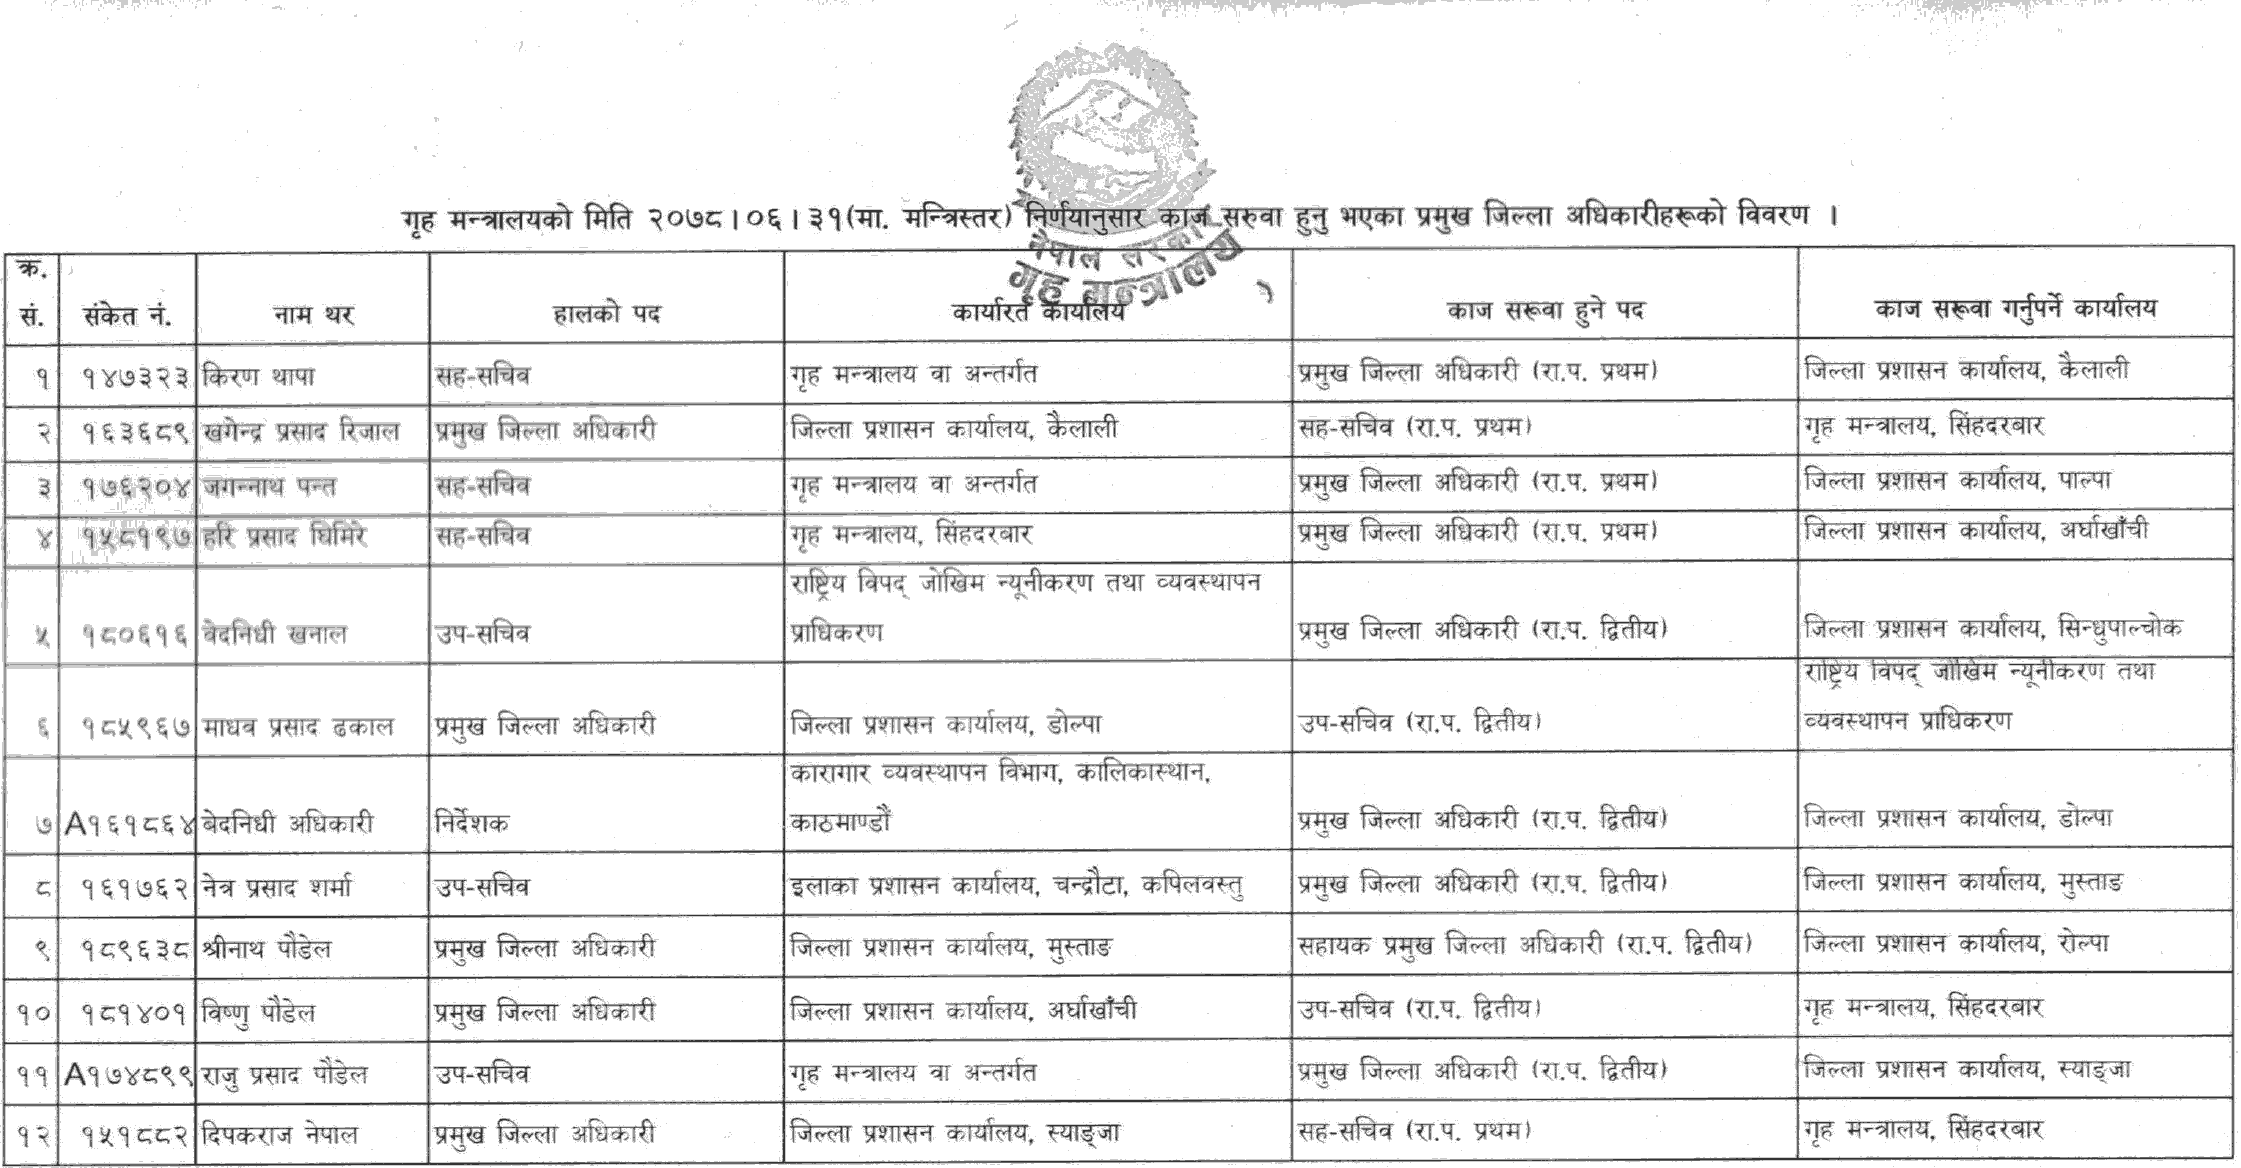 गृह मन्त्रालयको मिति २०७८।०६।३१(मा. मन्त्रिस्तर) निर्णयानुसार काज सरुवा हुनु भएका प्रमुख जिल्ला अधिकारीहरूको विवरण ।
नेपाल सरकार
गृह मन्त्रालय
क्र. सं. संकेत नं. नाम थर हालको पद कार्यारत कार्यालय काज सरूवा हुने पद काज सरूवा गर्नुपर्ने कार्यालय
१ १४७३२३ किरण थापा सह-सचिव गृह मन्त्रालय वा अन्तर्गत प्रमुख जिल्ला अधिकारी (रा.प. प्रथम) जिल्ला प्रशासन कार्यालय, कैलाली
२ १६३६८९ खगेन्द्र प्रसाद रिजाल प्रमुख जिल्ला अधिकारी जिल्ला प्रशासन कार्यालय, कैलाली सह-सचिव (रा.प. प्रथम) गृह मन्त्रालय, सिंहदरबार
३ १७६२०४ जगन्नाथ पन्त सह-सचिव गृह मन्त्रालय वा अन्तर्गत प्रमुख जिल्ला अधिकारी (रा.प. प्रथम) जिल्ला प्रशासन कार्यालय, पाल्पा
४ १५८१९७ हरि प्रसाद घिमिरे सह-सचिव गृह मन्त्रालय, सिंहदरबार प्रमुख जिल्ला अधिकारी (रा.प. प्रथम) जिल्ला प्रशासन कार्यालय, अर्घाखाँची
५ १८०६१६ बेदनिधी खनाल उप-सचिव राष्ट्रिय विपद् जोखिम न्यूनीकरण तथा व्यवस्थापन प्राधिकरण प्रमुख जिल्ला अधिकारी (रा.प. द्वितीय) जिल्ला प्रशासन कार्यालय, सिन्धुपाल्चोक
६ १८५९६७ माधव प्रसाद ढकाल प्रमुख जिल्ला अधिकारी जिल्ला प्रशासन कार्यालय, डोल्पा उप-सचिव (रा.प. द्वितीय) राष्ट्रिय विपद् जोखिम न्यूनीकरण तथा व्यवस्थापन प्राधिकरण
७ A१६१८६४ बेदनिधी अधिकारी निर्देशक कारागार व्यवस्थापन विभाग, कालिकास्थान, काठमाण्डौं प्रमुख जिल्ला अधिकारी (रा.प. द्वितीय) जिल्ला प्रशासन कार्यालय, डोल्पा
८ १६१७६२ नेत्र प्रसाद शर्मा उप-सचिव इलाका प्रशासन कार्यालय, चन्द्रौटा, कपिलवस्तु प्रमुख जिल्ला अधिकारी (रा.प. द्वितीय) जिल्ला प्रशासन कार्यालय, मुस्ताङ
९ १८९६३८ श्रीनाथ पौडेल प्रमुख जिल्ला अधिकारी जिल्ला प्रशासन कार्यालय, मुस्ताङ सहायक प्रमुख जिल्ला अधिकारी (रा.प. द्वितीय) जिल्ला प्रशासन कार्यालय, रोल्पा
१० १८१४०१ विष्णु पौडेल प्रमुख जिल्ला अधिकारी जिल्ला प्रशासन कार्यालय, अर्घाखाँची उप-सचिव (रा.प. द्वितीय) गृह मन्त्रालय, सिंहदरबार
११ A१७४८९९ राजु प्रसाद पौडेल उप-सचिव गृह मन्त्रालय वा अन्तर्गत प्रमुख जिल्ला अधिकारी (रा.प. द्वितीय) जिल्ला प्रशासन कार्यालय, स्याङ्जा
१२ १५१८८२ दिपकराज नेपाल प्रमुख जिल्ला अधिकारी जिल्ला प्रशासन कार्यालय, स्याङ्जा सह-सचिव (रा.प. प्रथम) गृह मन्त्रालय, सिंहदरबार